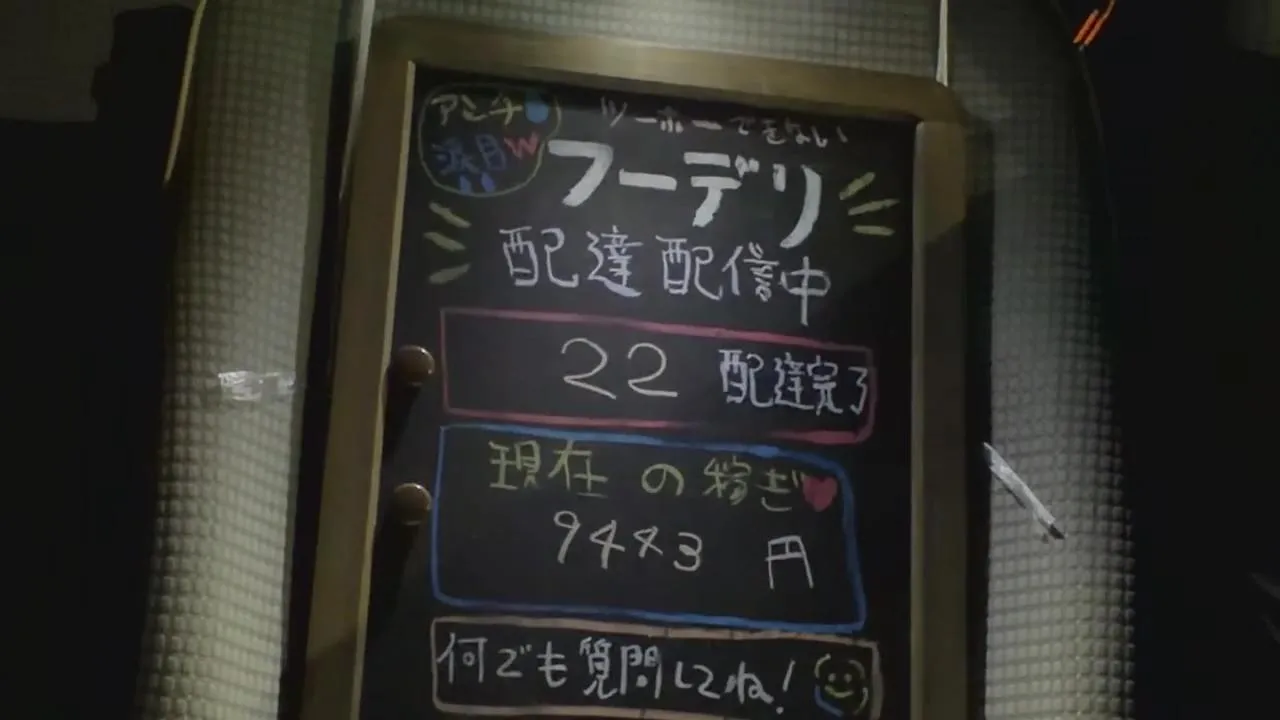 アンチ
ツーホーできない
涙目w
フーデリ
配達配信中
22 配達完了
現在の稼ぎ
9443円
何でも質問してね!